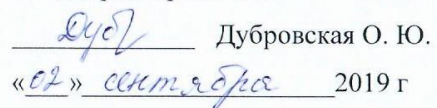 Дуб Дубровская О. Ю.
«02» сентября 2019 г